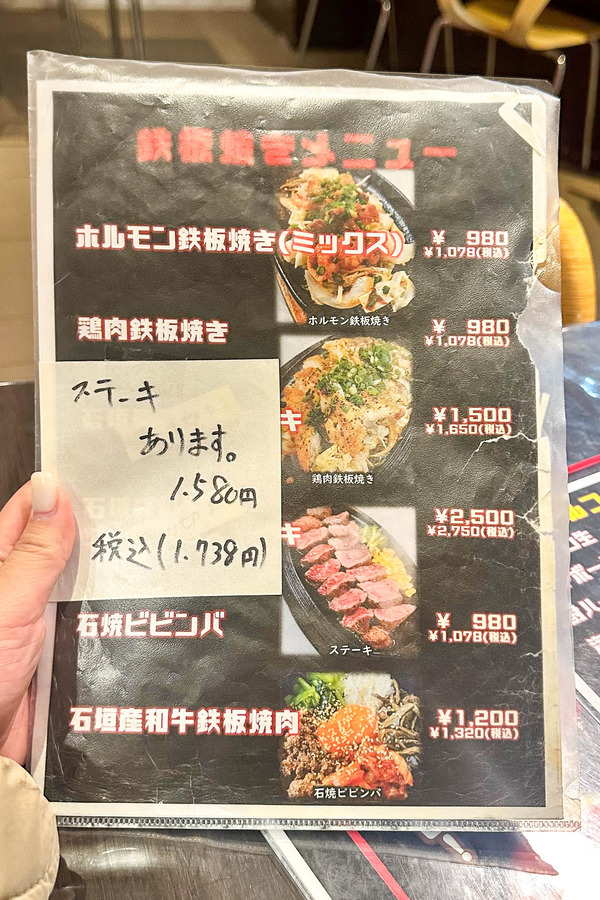 鉄板焼きメニュー
ホルモン鉄板焼き(ミックス)
¥ 980
¥1,078(税込)
ホルモン鉄板焼き
鶏肉鉄板焼き
¥ 980
¥1,078(税込)
ステーキ
あります。
1.580円
税込(1.738円)
キ
¥1,500
¥1,650(税込)
鶏肉鉄板焼き
キ
¥2,500
¥2,750(税込)
石焼ビビンバ
¥ 980
¥1,078(税込)
ステーキ
石垣産和牛鉄板焼肉
¥1,200
¥1,320(税込)
石焼ビビンバ